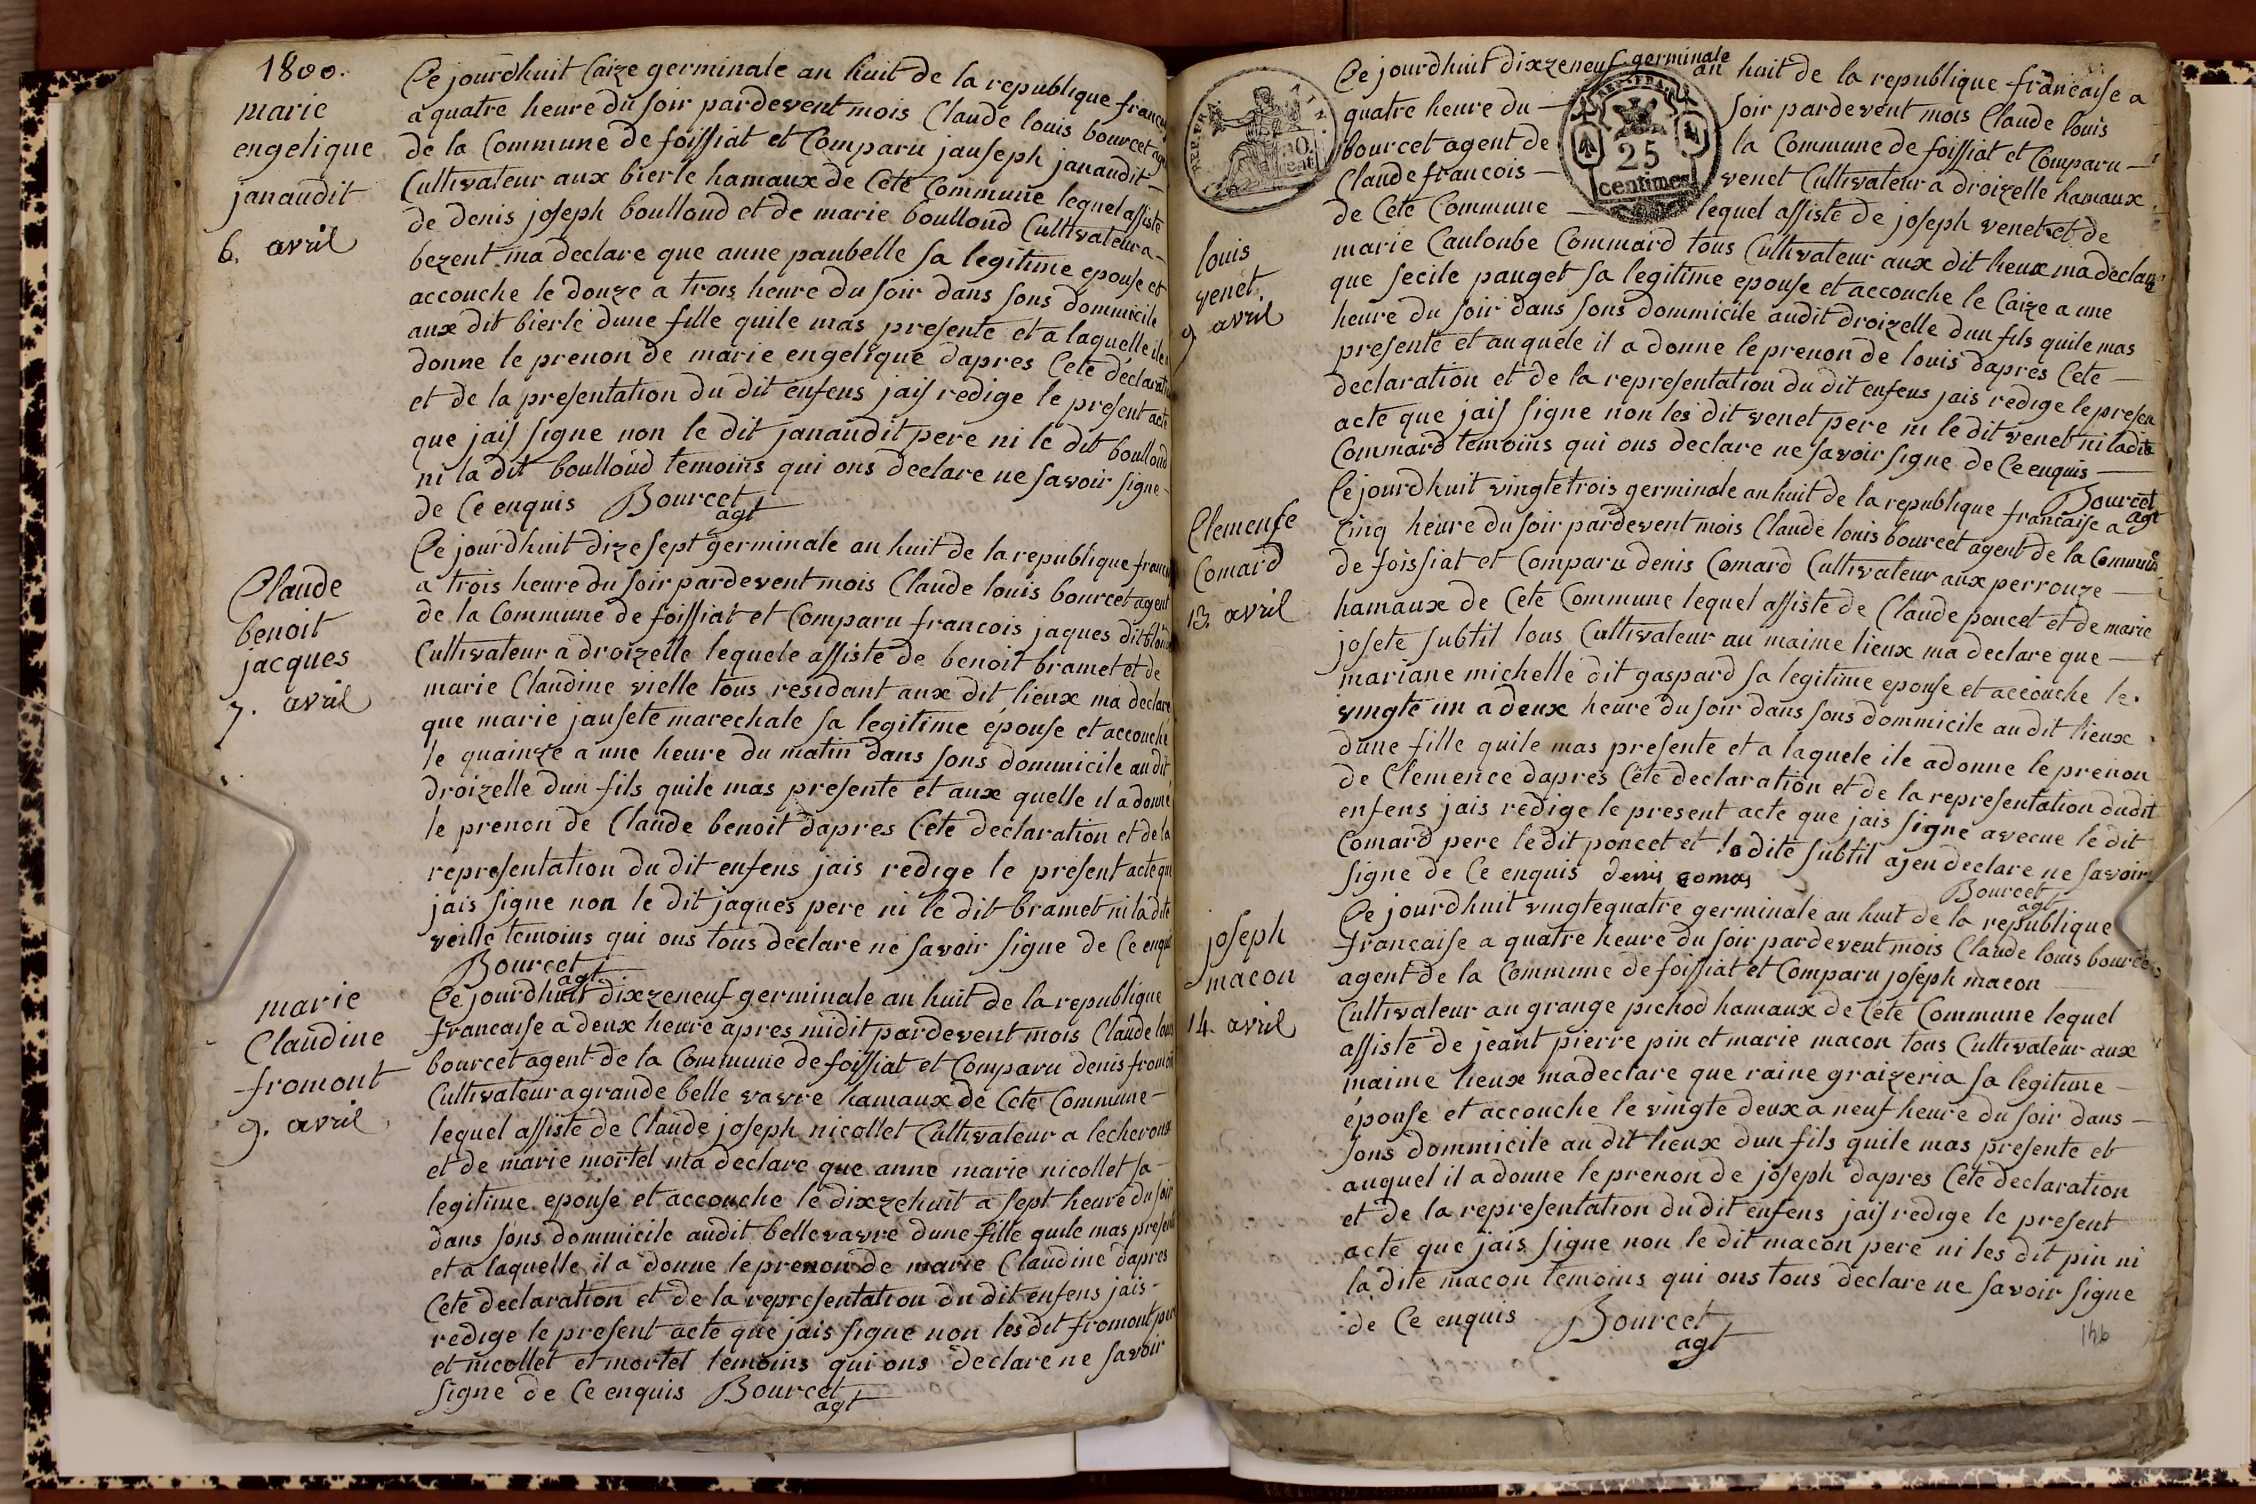 1800.
marie
engelique
janaudit
6. avril
Ce jourdhuit Caize germinale an huit de la republique
a quatre heure du soir pardevent mois Claude louis bourcet
de la Commune de foissiat et Comparu jauseph janaudit
Cultivateur aux bierle hamaux de Cete Commune lequel assiste
de denis joseph boulloud et de marie boulloud Cultivateur a
bezent ma declare que anne paubelle sa legitime epouse et
accouche le douze a trois heure du soir dans sons dommicile
aux dit bierle dune fille quile mas presente et a laquelle il
donne le prenon de marie engelique dapres Cete
et de la presentation du dit enfens jais redige le present acte
que jais signe non le dit janaudit pere ni le dit boulloud
ni la dit boulloud temoins qui ons declare ne savoir signe
de Ce enquis Bourcet
agt
Claude
benoit
jacques
7. avril
Ce jourdhuit dizesept germinale an huit de la republique
a trois heure du soir pardevent mois Claude louis bourcet agent
de la Commune de foissiat et Comparu francois jaques dit
Cultivateur a droizelle lequele assiste de benoit bramet et de
marie Claudine vielle tous residant aux dit lieux ma declare
que marie jausete marechale sa legitime epouse et accouche
le quainze a une heure du matin dans sons dommicile au dit
droizelle dun fils quile mas presente et aux quelle il a donne
le prenon de Claude benoit dapres Cete declaration et de la
representation du dit enfens jais redige le present acte que
jais signe non le dit jaques pere ni le dit bramet ni la dite
veille temoins qui ons tous declare ne savoir signe de Ce enquis
Bourcet
agt
marie
Claudine
fromont
9. avril
Ce jourdhuit dixzeneuf germinale an huit de la republique
francaise a deux heure apres midit pardevent mois Claude louis
bourcet agent de la Commune de foissiat et Comparu denis fromont
Cultivateur a grande belle vavre hamaux de Cete Commune
lequel assiste de Claude joseph nicollet Cultivateur a lecheroux
et de marie mortel ma declare que anne marie nicollet sa
legitime epouse et accouche le dixzehuit a sept heure du soir
dans sons dommicile audit bellevavre dune fille quile mas presente
et a laquelle il a donne le prenon de marie Claudine dapres
Cete declaration et de la representation du dit enfens jais
redige le present acte que jais signe non les dit fromont pere
et nicollet et mortel temoins qui ons declare ne savoir
signe de Ce enquis Bourcet
agt
REP. FRA.
25
centimes
louis
venet.
9 avril
Ce jourdhuit dixzeneuf germinale an huit de la republique francaise a
quatre heure du soir pardevent mois Claude louis
bourcet agent de la Commune de foissiat et Comparu
Claude francois venet Cultivateur a droizelle hamaux
de Cete Commune lequel assiste de joseph venet et de
marie Cauloube Commard tous Cultivateur aux dit lieux ma declare
que secile pauget sa legitime epouse et accouche le Caize a une
heure du soir dans sons dommicile audit droizelle dun fils quile mas
presente et auquele il a donne le prenon de louis dapres Cete
declaration et de la representation du dit enfens jais redige le presen
acte que jais signe non les dit venet pere ni le dit venet ni ladite
Commard temoins qui ons declare ne savoir signe de Ce enquis
Bourcet
agt
Clemense
Comard
13. avril
Ce jourdhuit vingtetrois germinale an huit de la republique francaise a
Cinq heure du soir pardevent mois Claude louis bourcet agent de la Commune
de foissiat et Comparu denis Comard Cultivateur aux perrouze
hamaux de Cete Commune lequel assiste de Claude poncet et de marie
josete subtil tous Cultivateur au maime lieux ma declare que
mariane michelle dit gaspard sa legitime epouse et accouche le
vingte un a deux heure du soir dans sons dommicile au dit lieux
dune fille quile mas presente et a laquele ile adonne le prenon
de Clemence dapres Cete declaration et de la representation dudit
enfens jais redige le present acte que jais signe avecue le dit
Comard pere le dit poncet et la dite subtil ajeu declare ne savoir
signe de Ce enquis denis comas
Bourcet
agt
joseph
macon
14. avril
Ce jourdhuit vingtequatre germinale an huit de la republique
francaise a quatre heure du soir pardevent mois Claude louis bource
agent de la Commune de foissiat et Comparu joseph macon
Cultivateur au grange pichod hamaux de Cete Commune lequel
assiste de jeant pierre pin et marie macon tous Cultivateur aux
maime lieux madeclare que raine graizeria sa legitime
epouse et accouche le vingte deux a neuf heure du soir dans
sons dommicile au dit lieux dun fils quile mas presente et
auquel il a donne le prenon de joseph dapres Cete declaration
et de la representation du dit enfens jais redige le present
acte que jais signe non le dit macon pere ni les dit pin ni
la dite macon temoins qui ons tous declare ne savoir signe
de Ce enquis Bourcet
agt